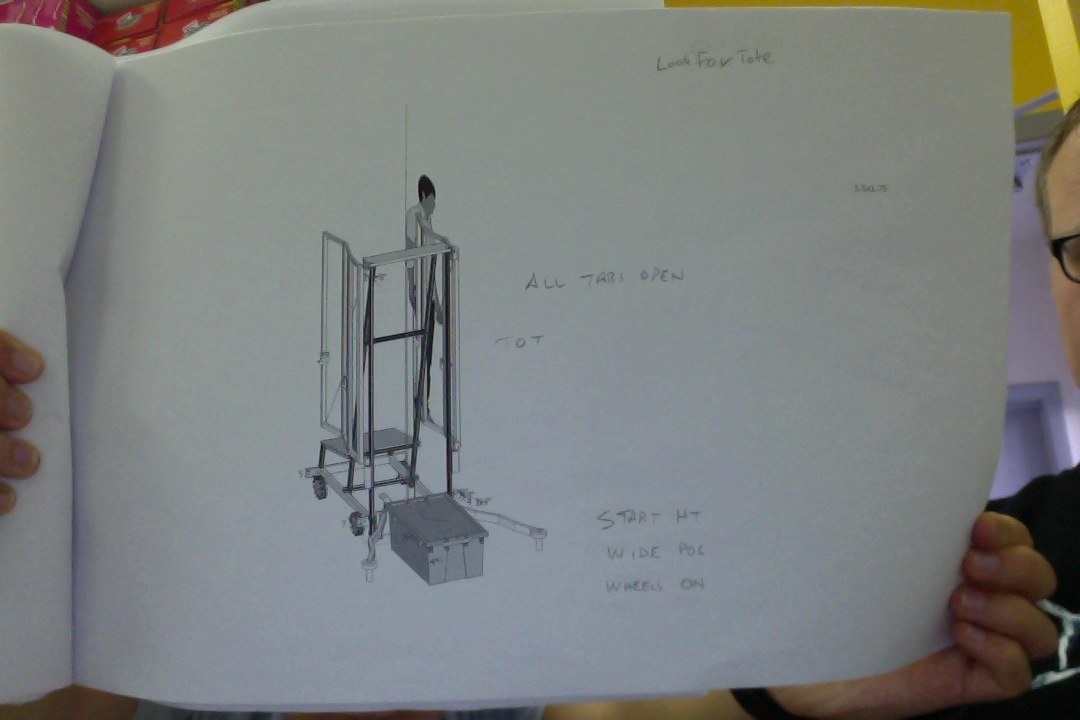 Look For Tote
ALL TABS OPEN
TOT
START HT
WIDE POS
WHEELS ON